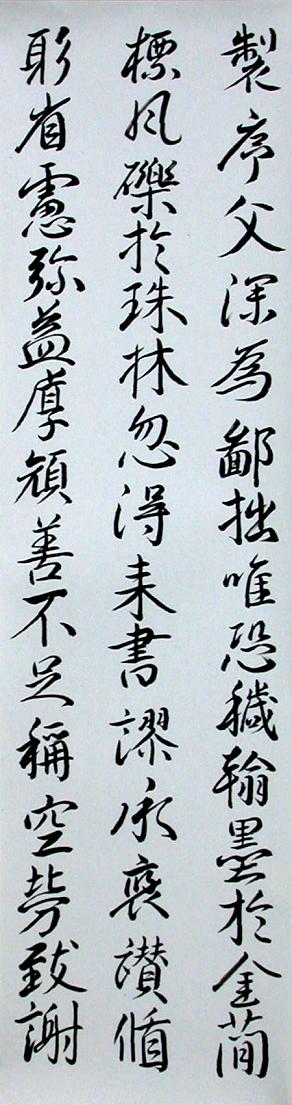 製序文深為鄙拙唯恐穢翰墨於金簡
標瓦礫於珠林忽得来書謬承褒讃循
躬省慮弥益厚顔善不足稱空勞致謝